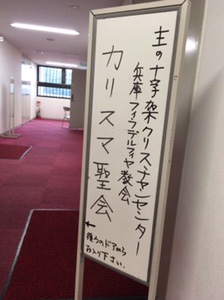 主の十字架クリスチャンセンター
兵庫フィラデルフィヤ教会
カリスマ聖会
←後ろのドアから
お入り下さい。